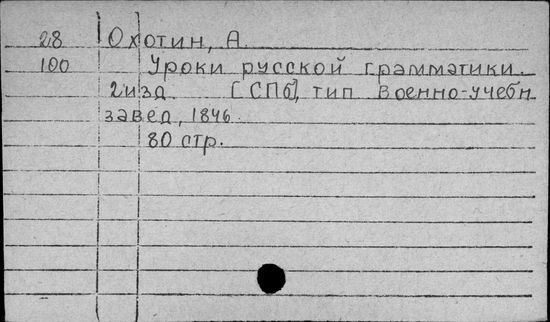 28 Охотин, А.
100 Уроки русской грамматики.
2 изд [СПб], тип Военно-учебн
завед, 1846.
80 стр.